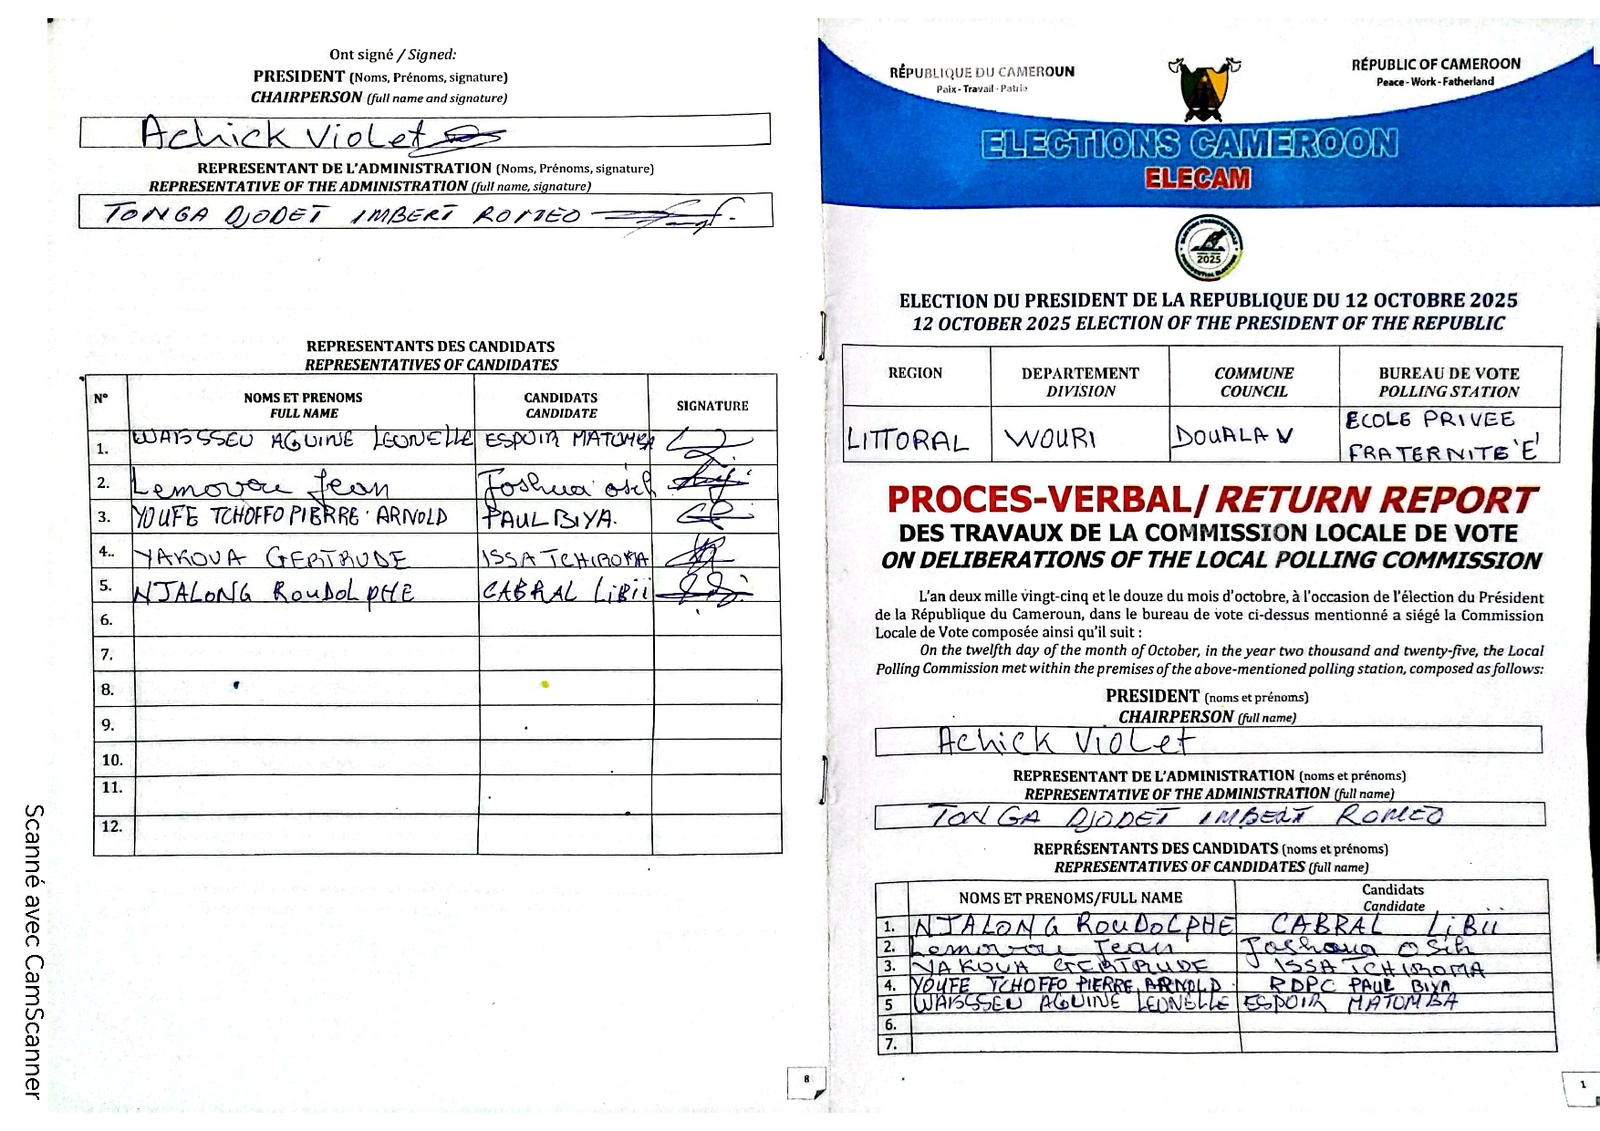 Ont signé / Signed:
PRESIDENT (Noms, Prénoms, signature)
CHAIRPERSON (full name and signature)
Achick Violet
REPRESENTANT DE L'ADMINISTRATION (Noms, Prénoms, signature)
REPRESENTATIVE OF THE ADMINISTRATION (full name, signature)
TONGA DJODET IMBERT ROMEO
REPRESENTANTS DES CANDIDATS
REPRESENTATIVES OF CANDIDATES
N° NOMS ET PRENOMS CANDIDATS SIGNATURE
FULL NAME CANDIDATE
1. WAISSSEU AGUINE LEONELLE ESPOIR MATOMBA
2. Lemovou Jean Joshua osih
3. YOUFE TCHOFFO PIERRE ARNOLD PAUL BIYA.
4.. YAKOUA GERTRUDE ISSA TCHIROMA
5. NJALONG ROUDOLPHE CABRAL LiBii
6.
7.
8.
9.
10.
11.
12.
8
Scanné avec CamScanner
RÉPUBLIQUE DU CAMEROUN
Paix - Travail - Patrie
RÉPUBLIC OF CAMEROON
Peace - Work - Fatherland
ELECTIONS CAMEROON
ELECAM
2025
ELECTION DU PRESIDENT DE LA REPUBLIQUE DU 12 OCTOBRE 2025
12 OCTOBER 2025 ELECTION OF THE PRESIDENT OF THE REPUBLIC
REGION DEPARTEMENT COMMUNE BUREAU DE VOTE
DIVISION COUNCIL POLLING STATION
LITTORAL WOURI DOUALA V ECOLE PRIVEE
FRATERNITE 'E'
PROCES-VERBAL/ RETURN REPORT
DES TRAVAUX DE LA COMMISSION LOCALE DE VOTE
ON DELIBERATIONS OF THE LOCAL POLLING COMMISSION
L'an deux mille vingt-cinq et le douze du mois d'octobre, à l'occasion de l'élection du Président
de la République du Cameroun, dans le bureau de vote ci-dessus mentionné a siégé la Commission
Locale de Vote composée ainsi qu'il suit :
On the twelfth day of the month of October, in the year two thousand and twenty-five, the Local
Polling Commission met within the premises of the above-mentioned polling station, composed as follows:
PRESIDENT (noms et prénoms)
CHAIRPERSON (full name)
Achick Violet
REPRESENTANT DE L'ADMINISTRATION (noms et prénoms)
REPRESENTATIVE OF THE ADMINISTRATION (full name)
TONGA DJODET IMBERT ROMEO
REPRÉSENTANTS DES CANDIDATS (noms et prénoms)
REPRESENTATIVES OF CANDIDATES (full name)
NOMS ET PRENOMS/FULL NAME Candidats
Candidate
1. NJALONG ROUDOLPHE CABRAL LiBii
2. Lemovou Jean Joshoua Osih
3. YAKOUA GERTRUDE ISSA TCHIROMA
4. YOUFE TCHOFFO PIERRE ARNOLD RDPC PAUL BIYA
5 WAISSSEU AGUINE LEONELLE ESPOIR MATOMBA
6.
7.
1